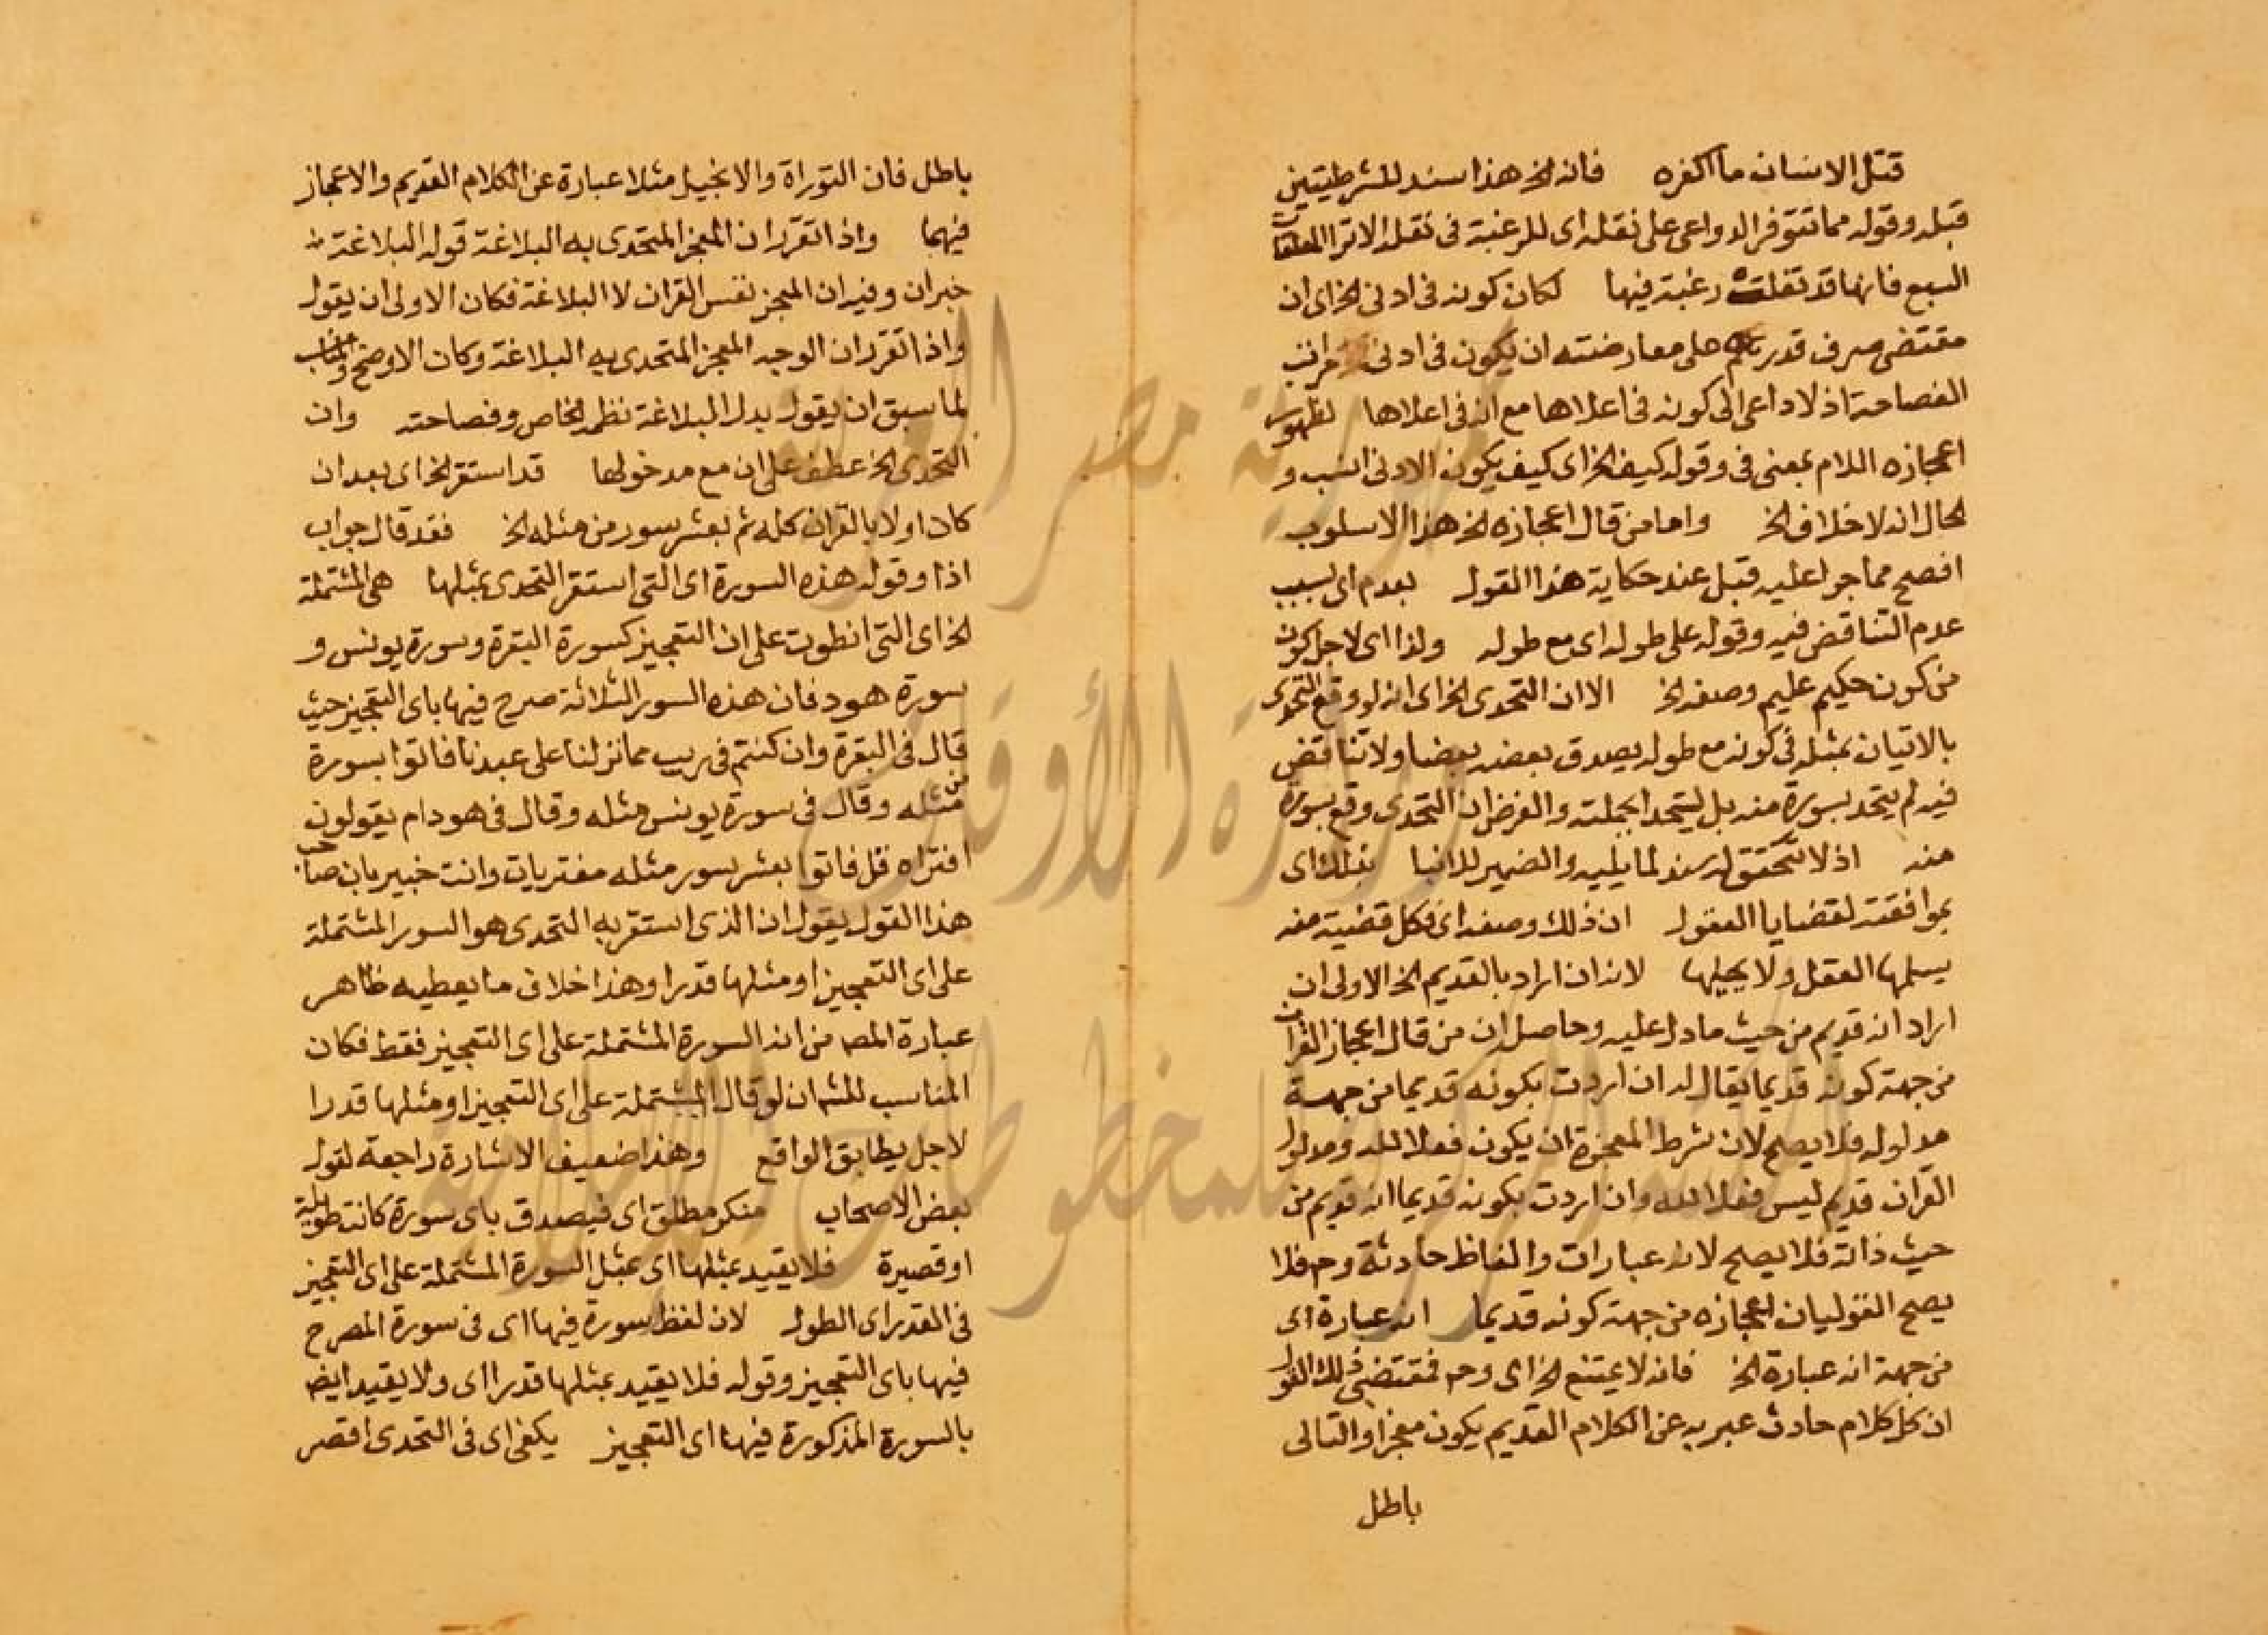 قتل الانسان ما اكفره فانه الخ هذا سند للشرطيتين
قبله وقوله مما تتوفر الدواعي على نقله اي للرغبة في نقله الا ترا المعلقات
السبع فانها قد نقلت رغبة فيها لكان كونه في ادنى الخ اي ان
مقتضى صرف قدرتهم على معارضته ان يكون في ادنى مراتب
الفصاحة اذ لا داعي الى كونه في اعلاها مع انه في اعلاها لظهور
اعجازه اللام بمعنى في وقوله كيف الخ اي كيف يكون الادنى انسب و
الحال انه لا خلاف الخ واما من قال اعجازه الخ هذا الاسلوب
افصح مما جرا عليه قبل عند حكاية هذا القول بعدم اي بسبب
عدم التناقض فيه وقوله على طوله اي مع طوله ولذا اي لاجل كون
من كون حكيم عليم وصفه الخ الا ان التحدي الخ اي انه لو وقع التحدي
بالاتيان بمثله في كونه مع طوله يصدق بعضه بعضا ولا تناقض
فيه لم يتحد بسورة منه بل يتحد بجملته والفرض ان التحدي وقع بسورة
منه اذ لا تتحقق له سند لما يليه والضمير للانبا بذلك اي
بموافقته لقضايا العقول ان ذلك وصفه اي فكل قضية منه
يسلمها العقل ولا يحيلها لانه ان اراد بالقديم الخ الاولى ان
اراد انه قديم من حيث ما دل عليه وحاصله ان من قال اعجاز القران
من جهة كونه قديما يقال له ان اردت بكونه قديما من جهة
مدلوله فلا يصح لان شرط المعجزة ان يكون فعلا لله ومدلول
القران قديم ليس فعلا لله وان اردت بكونه قديما انه قديم من
حيث ذاته فلا يصح لانه عبارات والفاظ حادثة وح فلا
يصح القول بان اعجازه من جهة كونه قديما انه عبارة اي
من جهة انه عبارة الخ فانه لا يمتنع الخ اي وح فمقتضى ذلك القول
ان كل كلام حادث عبر به عن الكلام القديم يكون معجزا والتالي
باطل
باطل فان التوراة والانجيل مثلا عبارة عن الكلام القديم والاعجاز
فيهما واذا تقرر ان المعجز المتحدى به البلاغة قوله البلاغة
خبر ان وفيه ان المعجز نفس القران لا البلاغة فكان الاولى ان يقول
واذا تقرر ان الوجه المعجز المتحدى به البلاغة وكان الاوضح والمناسب
لما سبق ان يقول بدل البلاغة نظمه الخاص وفصاحته وان
التحدي الخ عطف على ان مع مدخولها قد استقر الخ اي بعد ان
كان اولا بالقران كله ثم بعشر سور من مثله الخ فقد قال جواب
اذا وقوله هذه السورة اي التي استقر التحدي بمثلها هي المشتملة
الخ اي التي انطوت على ان التعجيز كسورة البقرة وسورة يونس و
سورة هود فان هذه السور الثلاثة صرح فيها باي التعجيز حيث
قال في البقرة وان كنتم في ريب مما نزلنا على عبدنا فاتوا بسورة
من مثله وقال في سورة يونس مثله وقال في هود ام يقولون
افتراه قل فاتوا بعشر سور مثله مفتريات وانت خبير بان صاحب
هذا القول يقول ان الذي استقر به التحدي هو السور المشتملة
على اي التعجيز او مثلها قدرا وهذا خلاف ما يعطيه ظاهر
عبارة المص من انه السورة المشتملة على اي التعجيز فقط فكان
المناسب للش ان لو قال المشتملة على اي التعجيز او مثلها قدرا
لاجل يطابق الواقع وهذا ضعيف الاشارة راجعة لقول
بعض الاصحاب منكر مطلق اي فيصدق باي سورة كانت طويلة
او قصيرة فلا يقيد بمثلها اي بمثل السورة المشتملة على اي التعجيز
في القدر اي الطول لان لفظ سورة فيها اي في سورة المصرح
فيها باي التعجيز وقوله فلا يقيد بمثلها قدرا اي ولا يقيد ايض
بالسورة المذكورة فيها اي التعجيز يكفي اي في التحدي اقصر